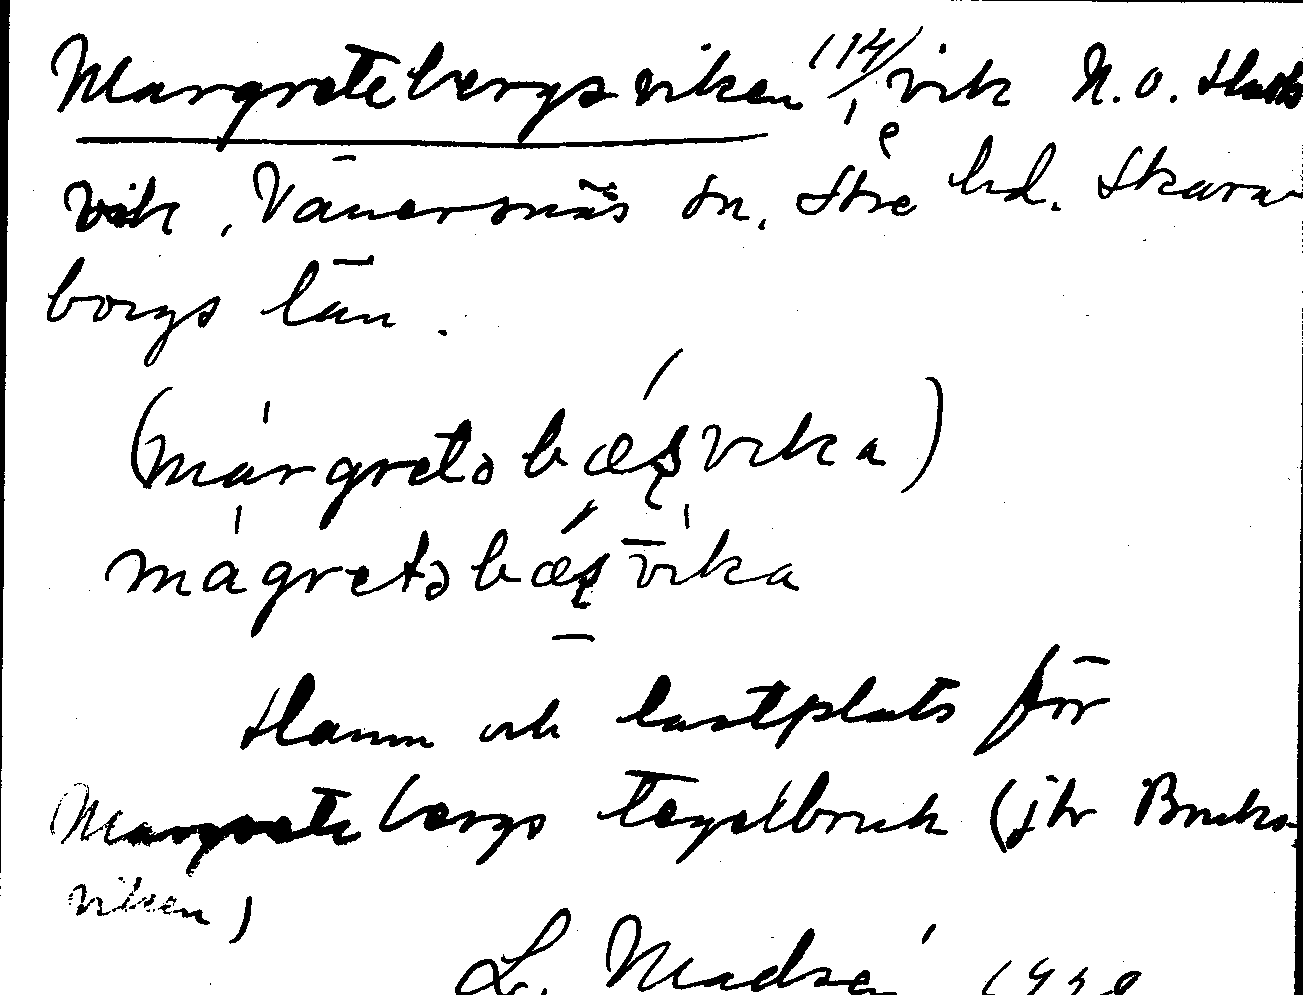 Margretebergsviken (14), vik N.O. Slads
vik, Vänersnäs sn. Åse hd. Skara-
borgs län.
(màrgretəbæʂvika)
màgretəbæʂvika
Hamn och lastplats för
Margretebergs tegelbruk (jfr Bruks-
viken)
L. Madsén 1928